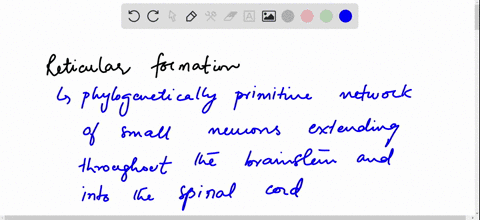 Reticular formation
↳ phylogenetically primitive network
of small neurons extending
throughout the brainstem and
into the spinal cord